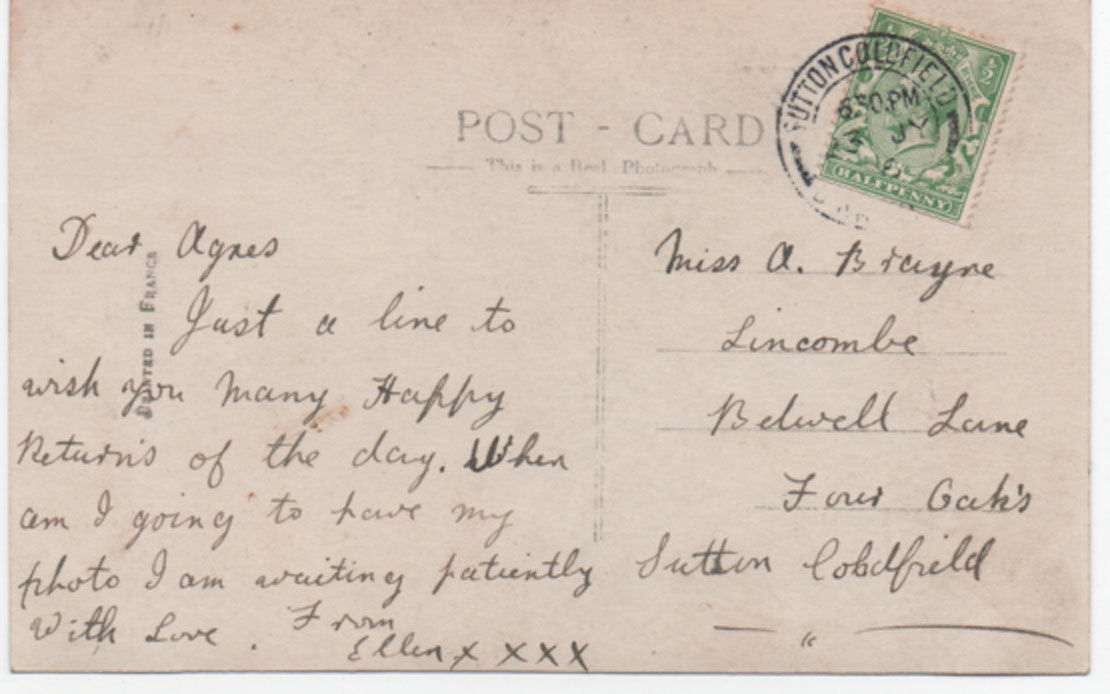 POST - CARD
This is a Real Photograph
SUTTON COLDFIELD
6.50.PM
JY
½
HALFPENNY
PRINTED IN FRANCE
Dear Agnes
Just a line to
wish you Many Happy
Return's of the day. When
am I going to have my
photo I am waiting patiently
With Love. From
Ellen x x x x
Miss A. Brayne
Lincombe
Belwell Lane
Four Oak's
Sutton Coldfield